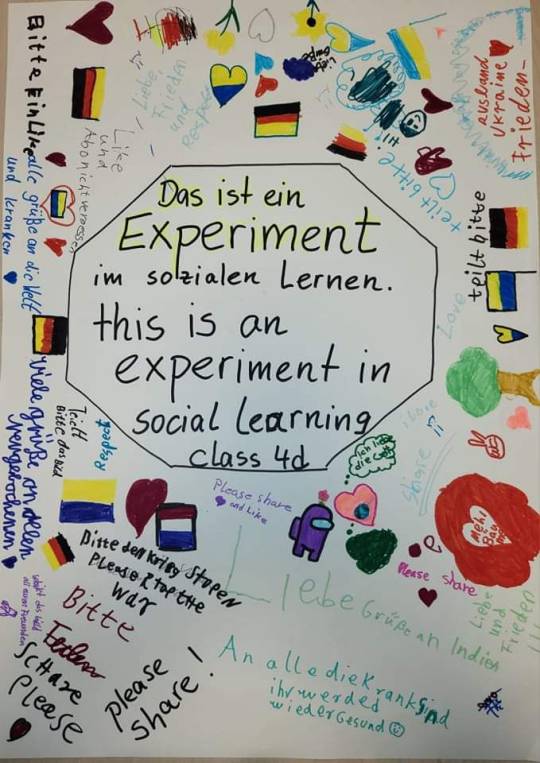 Das ist ein
Experiment
im sozialen Lernen.
this is an
experiment in
social learning
class 4d
Bitte Ein Like
alle grüße an die Welt
und kranken
Like
und
Abo nicht vergessen
Liebe
Frieden
und
Respeckt
ausland
Ukraine
Frieden-
teilt bitte
teilt bitte
Love
share
viele grüße an denen
Teilt
Bitte das Bild
Respect
ich liebe
die Welt
Please share
and Like
Mehr
Bäu
Please share
Liebe
und
Frieden
Bitte den Krieg Stopen
Please Stop the
War
Bitte
Teilen
Schare
Please
please
share!
Liebe Grüße an Indien
An alle die Krank Sind
ihr werded
wieder Gesund